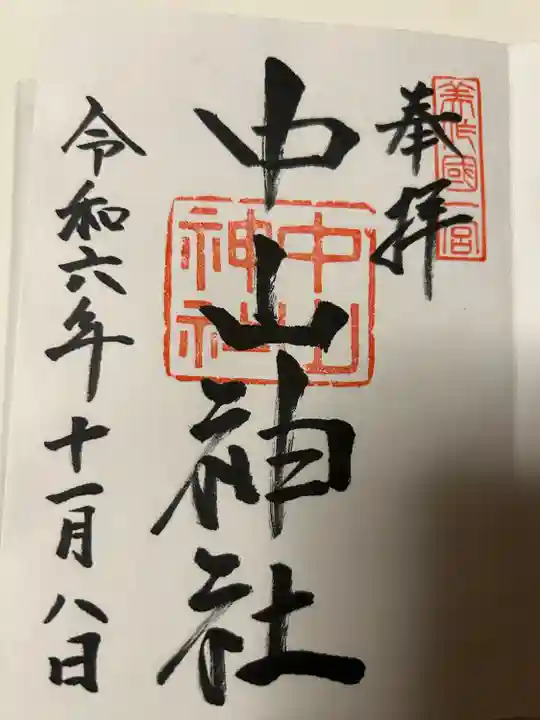 美作國一宮
奉拝
中山神社
中山神社
令和六年十一月八日